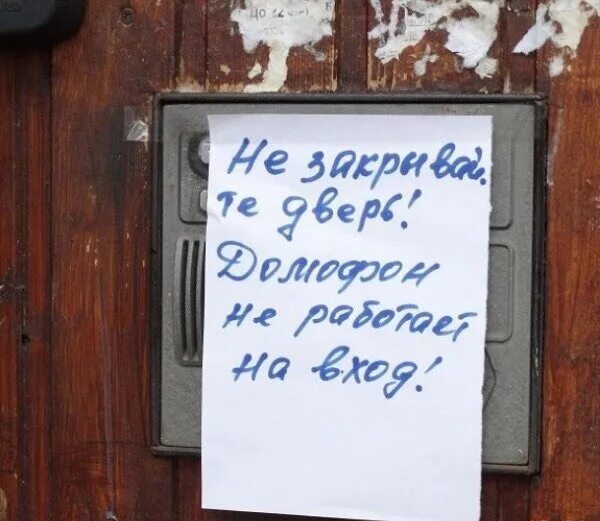 Не закрывай.
те дверь!
Домофон
не работает
на вход!